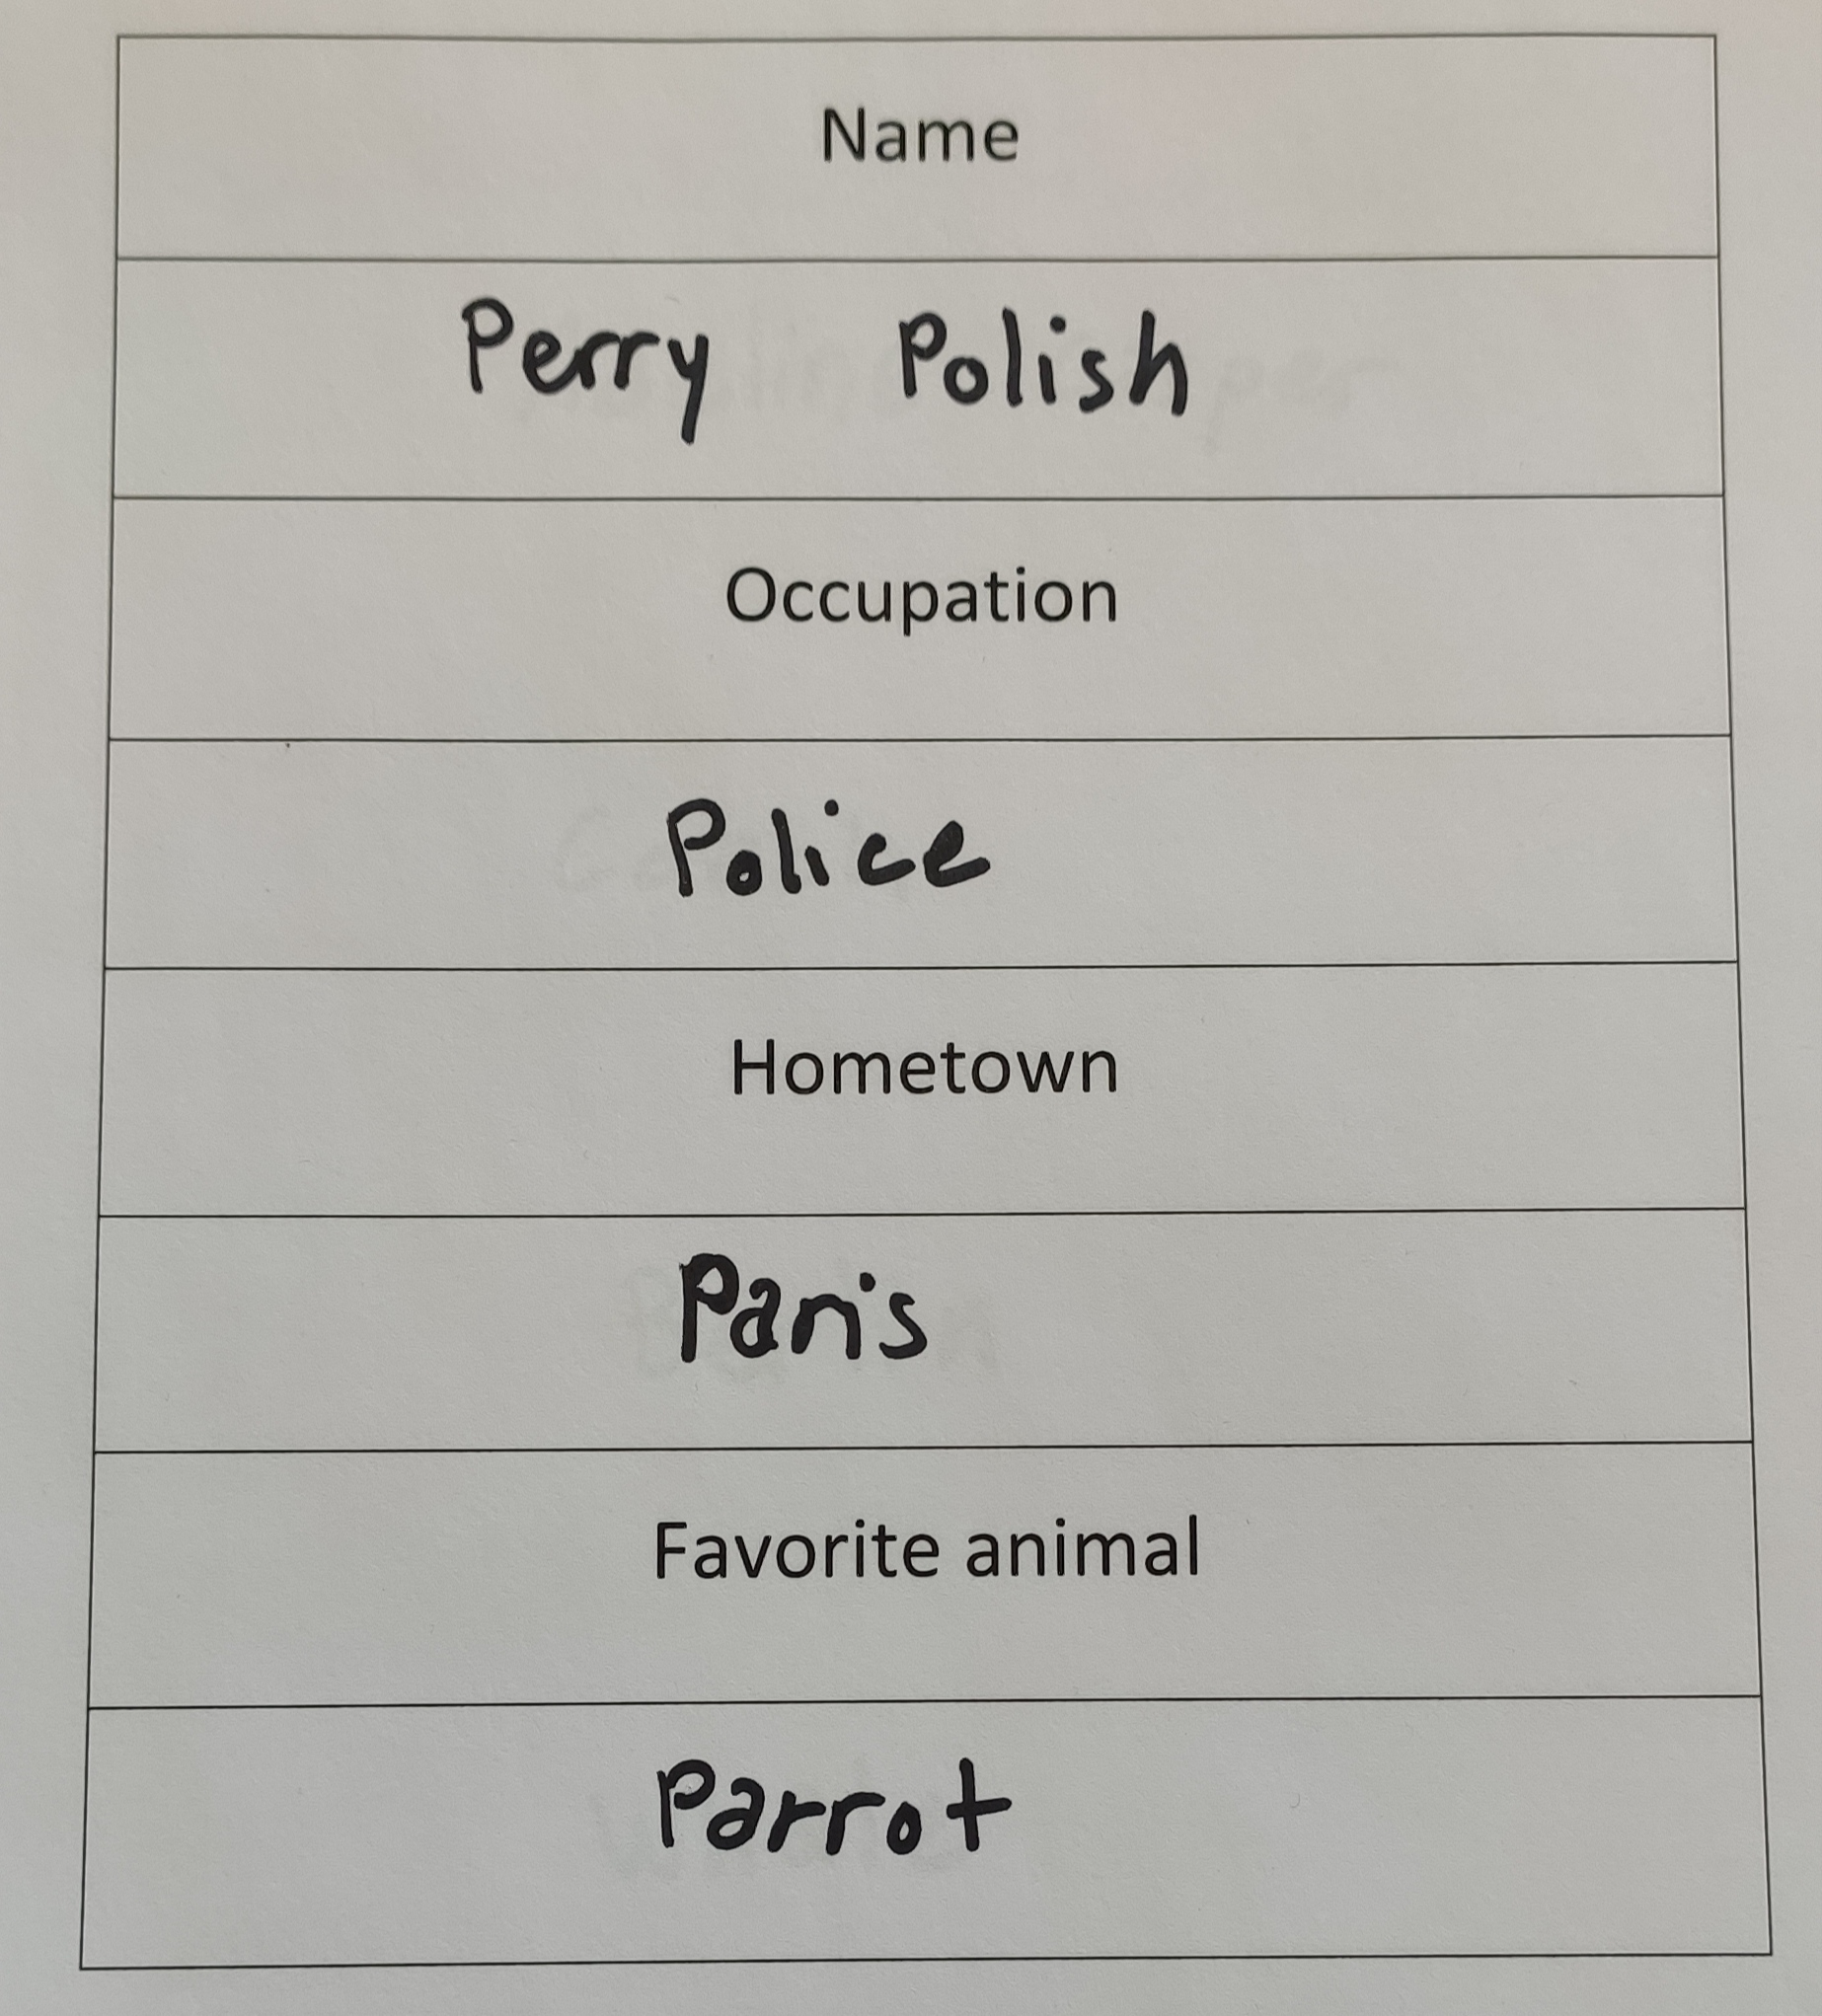 Name
Perry Polish
Occupation
Police
Hometown
Paris
Favorite animal
Parrot